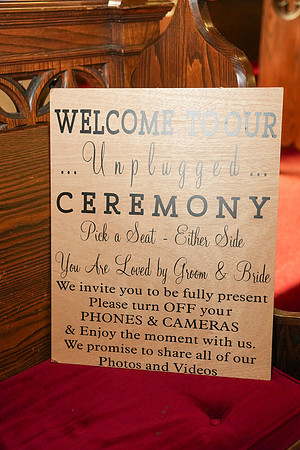 WELCOME TO OUR
... Unplugged ...
CEREMONY
Pick a Seat - Either Side
You Are Loved by Groom & Bride
We invite you to be fully present
Please turn OFF your
PHONES & CAMERAS
& Enjoy the moment with us.
We promise to share all of our
Photos and Videos